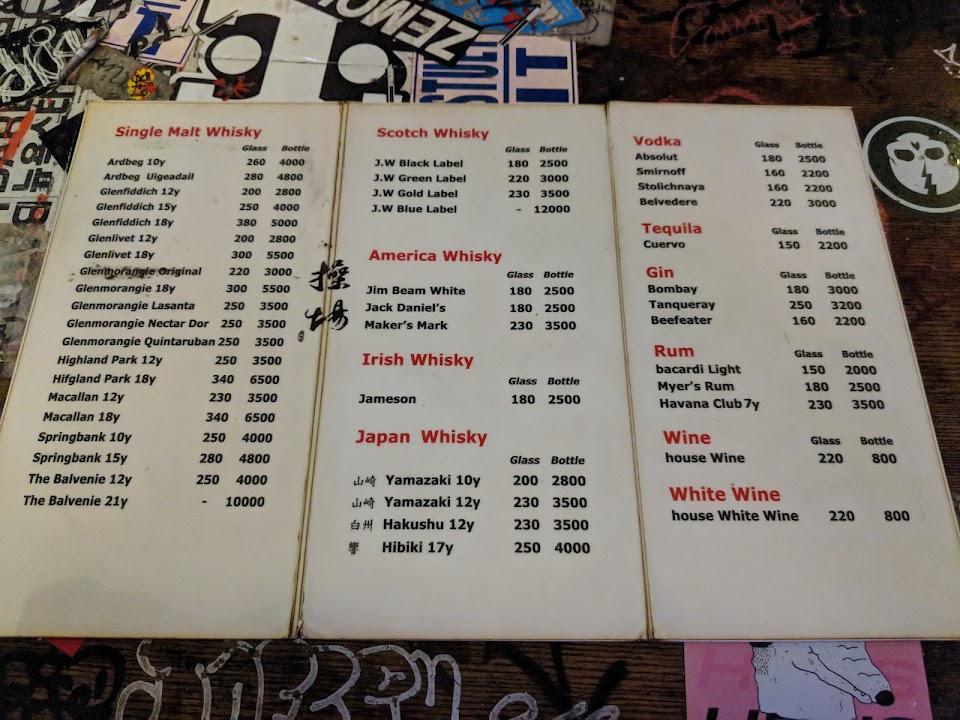 ZEMO
STULT
IT
Single Malt Whisky
Glass Bottle
Ardbeg 10y 260 4000
Ardbeg Uigeadail 280 4800
Glenfiddich 12y 200 2800
Glenfiddich 15y 250 4000
Glenfiddich 18y 380 5000
Glenlivet 12y 200 2800
Glenlivet 18y 300 5500
Glenmorangie Original 220 3000
Glenmorangie 18y 300 5500
Glenmorangie Lasanta 250 3500
Glenmorangie Nectar Dor 250 3500
Glenmorangie Quintaruban 250 3500
Highland Park 12y 250 3500
Hifgland Park 18y 340 6500
Macallan 12y 230 3500
Macallan 18y 340 6500
Springbank 10y 250 4000
Springbank 15y 280 4800
The Balvenie 12y 250 4000
The Balvenie 21y - 10000
操場
Scotch Whisky
Glass Bottle
J.W Black Label 180 2500
J.W Green Label 220 3000
J.W Gold Label 230 3500
J.W Blue Label - 12000
America Whisky
Glass Bottle
Jim Beam White 180 2500
Jack Daniel's 180 2500
Maker's Mark 230 3500
Irish Whisky
Glass Bottle
Jameson 180 2500
Japan Whisky
Glass Bottle
山崎 Yamazaki 10y 200 2800
山崎 Yamazaki 12y 230 3500
白州 Hakushu 12y 230 3500
響 Hibiki 17y 250 4000
Vodka Glass Bottle
Absolut 180 2500
Smirnoff 160 2200
Stolichnaya 160 2200
Belvedere 220 3000
Tequila Glass Bottle
Cuervo 150 2200
Gin Glass Bottle
Bombay 180 3000
Tanqueray 250 3200
Beefeater 160 2200
Rum Glass Bottle
bacardi Light 150 2000
Myer's Rum 180 2500
Havana Club 7y 230 3500
Wine Glass Bottle
house Wine 220 800
White Wine
house White Wine 220 800